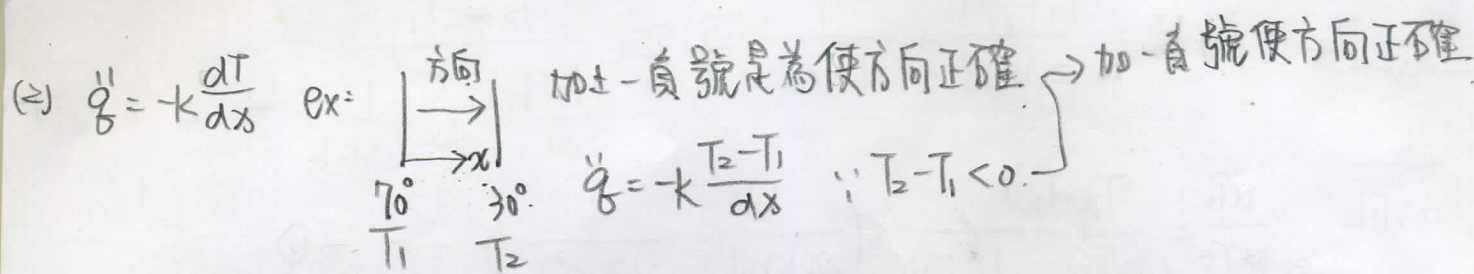 (2) q̈ = -k dT/dx ex: 方向 加上一負號是為使方向正確 → 加一負號使方向正確
→x
70° 30°. q̈ = -k (T₂-T₁)/dx ∵ T₂-T₁<0.
T₁ T₂